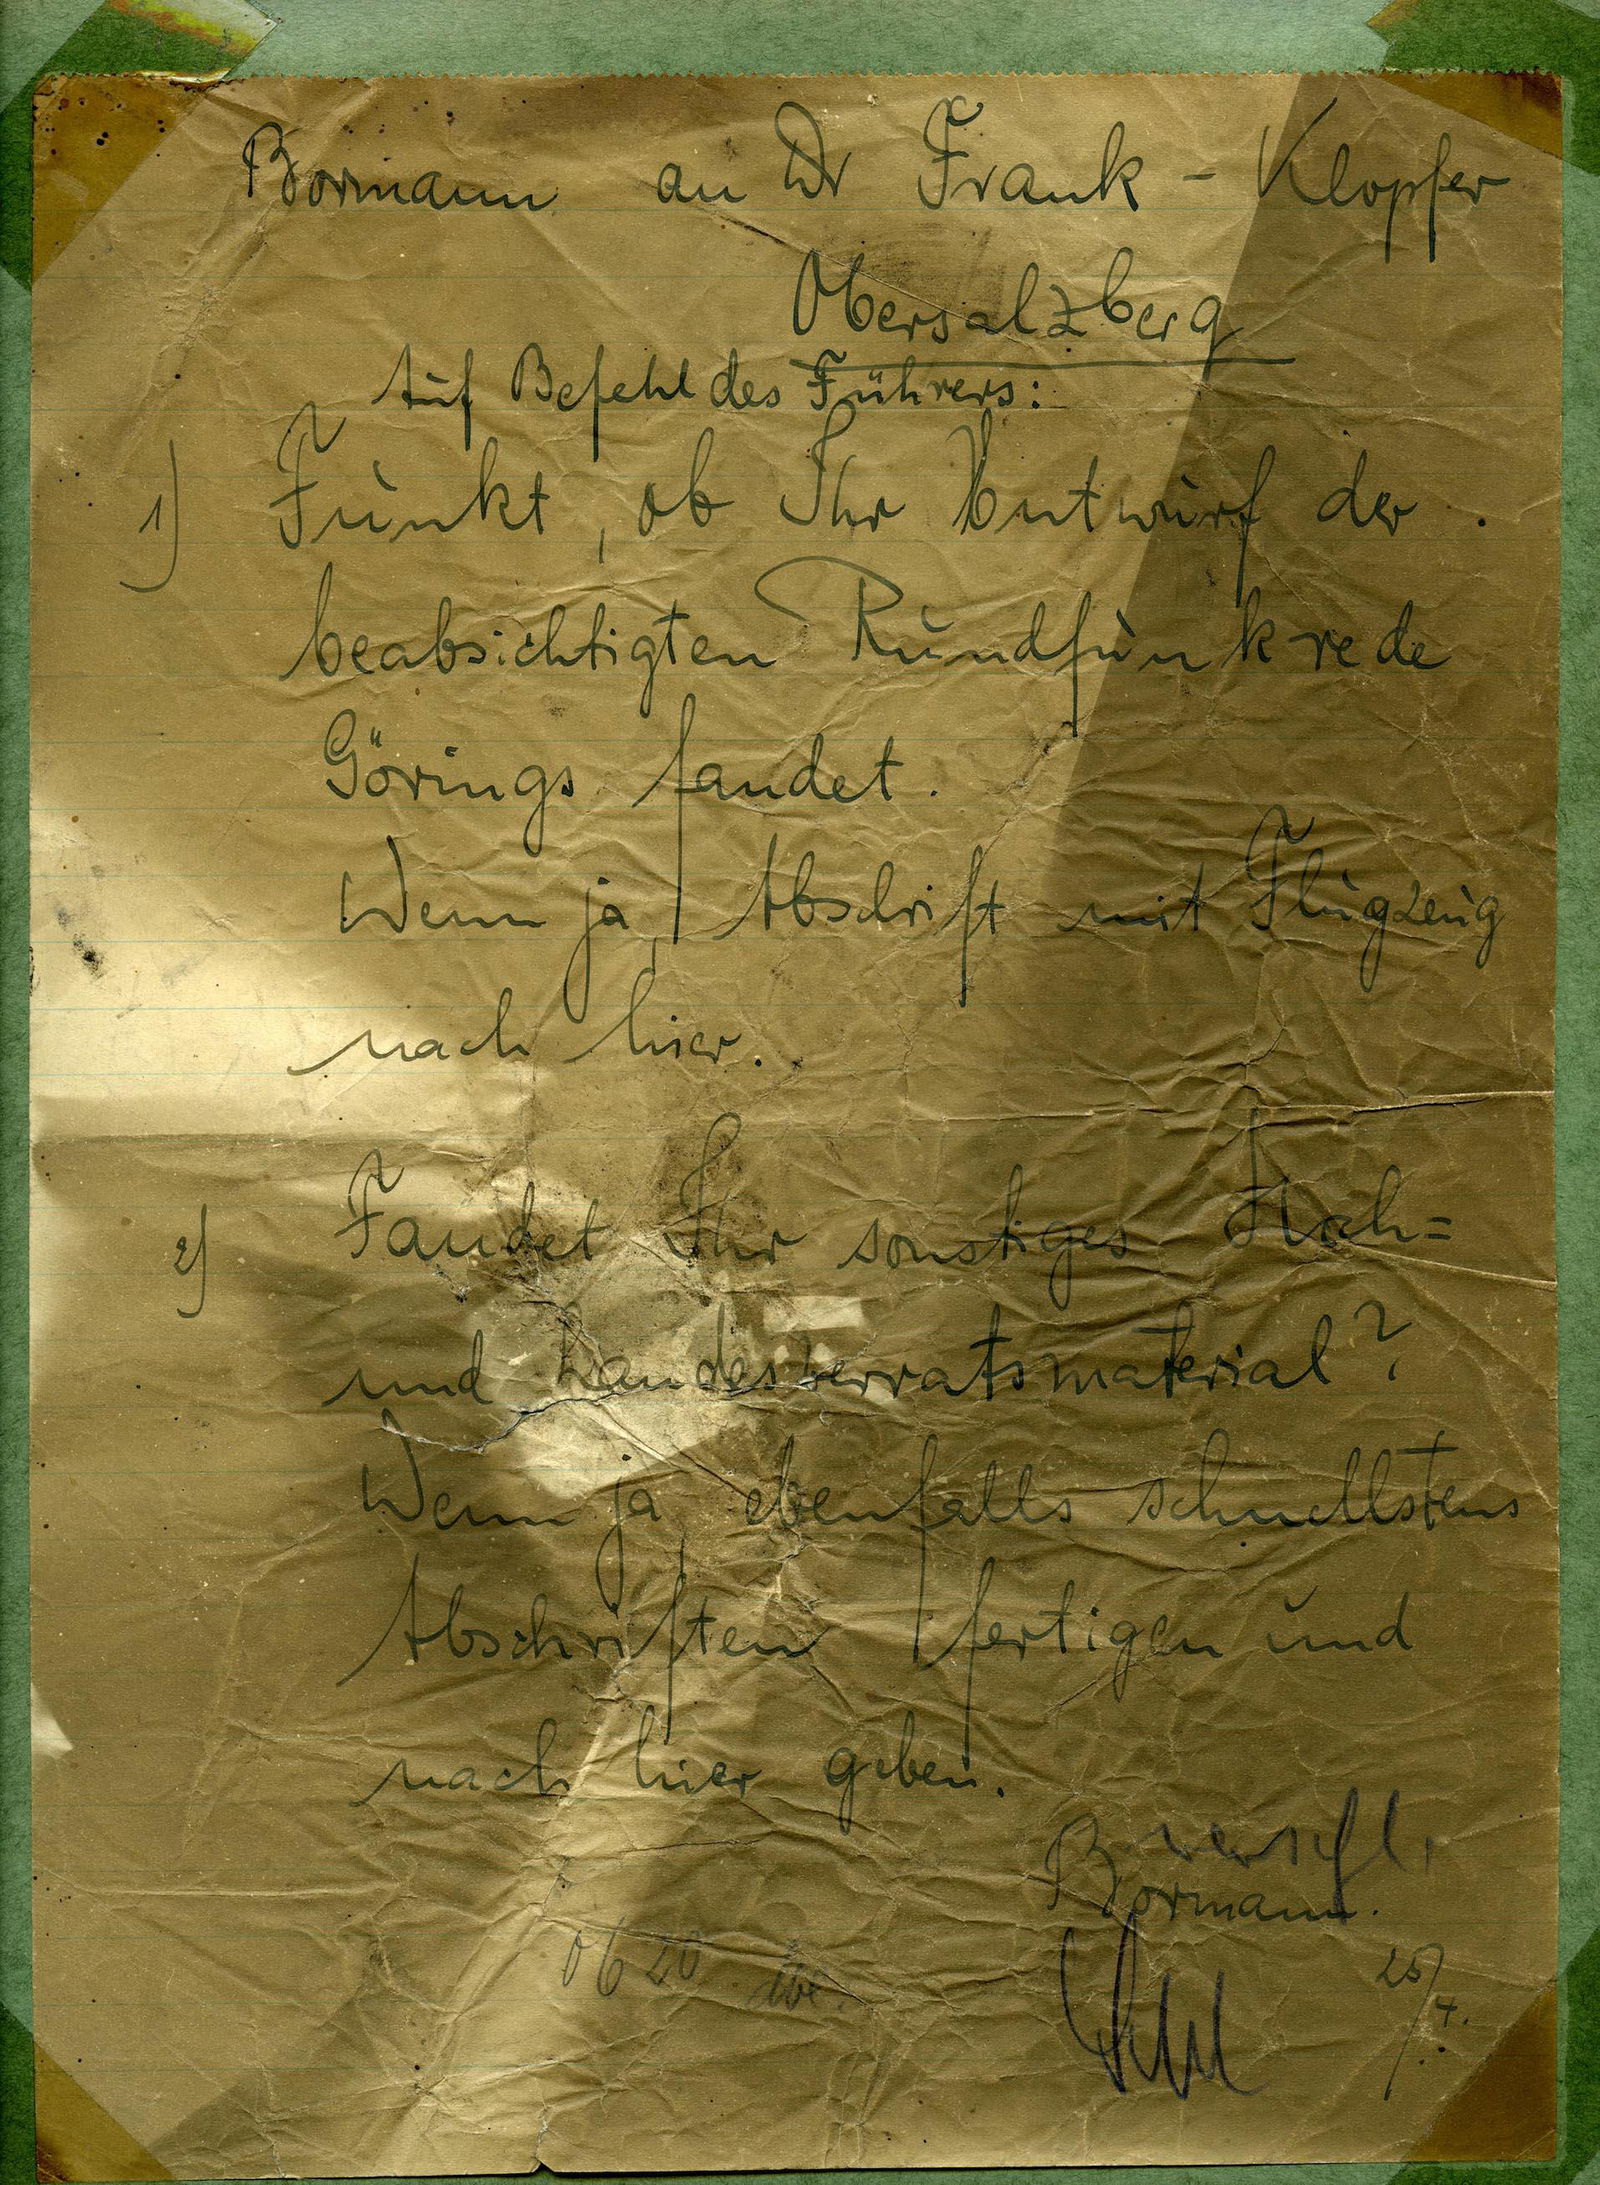 Bormann an Dr Frank - Klopfer
Obersalzberg
Auf Befehl des Führers:
1) Funkt, ob Ihr Entwurf der
beabsichtigten Rundfunkrede
Görings fandet.
Wenn ja, Abschrift mit Flugzeug
nach hier.
2) Fandet Ihr sonstiges Hoch=
und Landesverratsmaterial?
Wenn ja, ebenfalls schnellstens
Abschriften fertigen und
nach hier geben.
verschl.
Bormann.
0620
25/4.